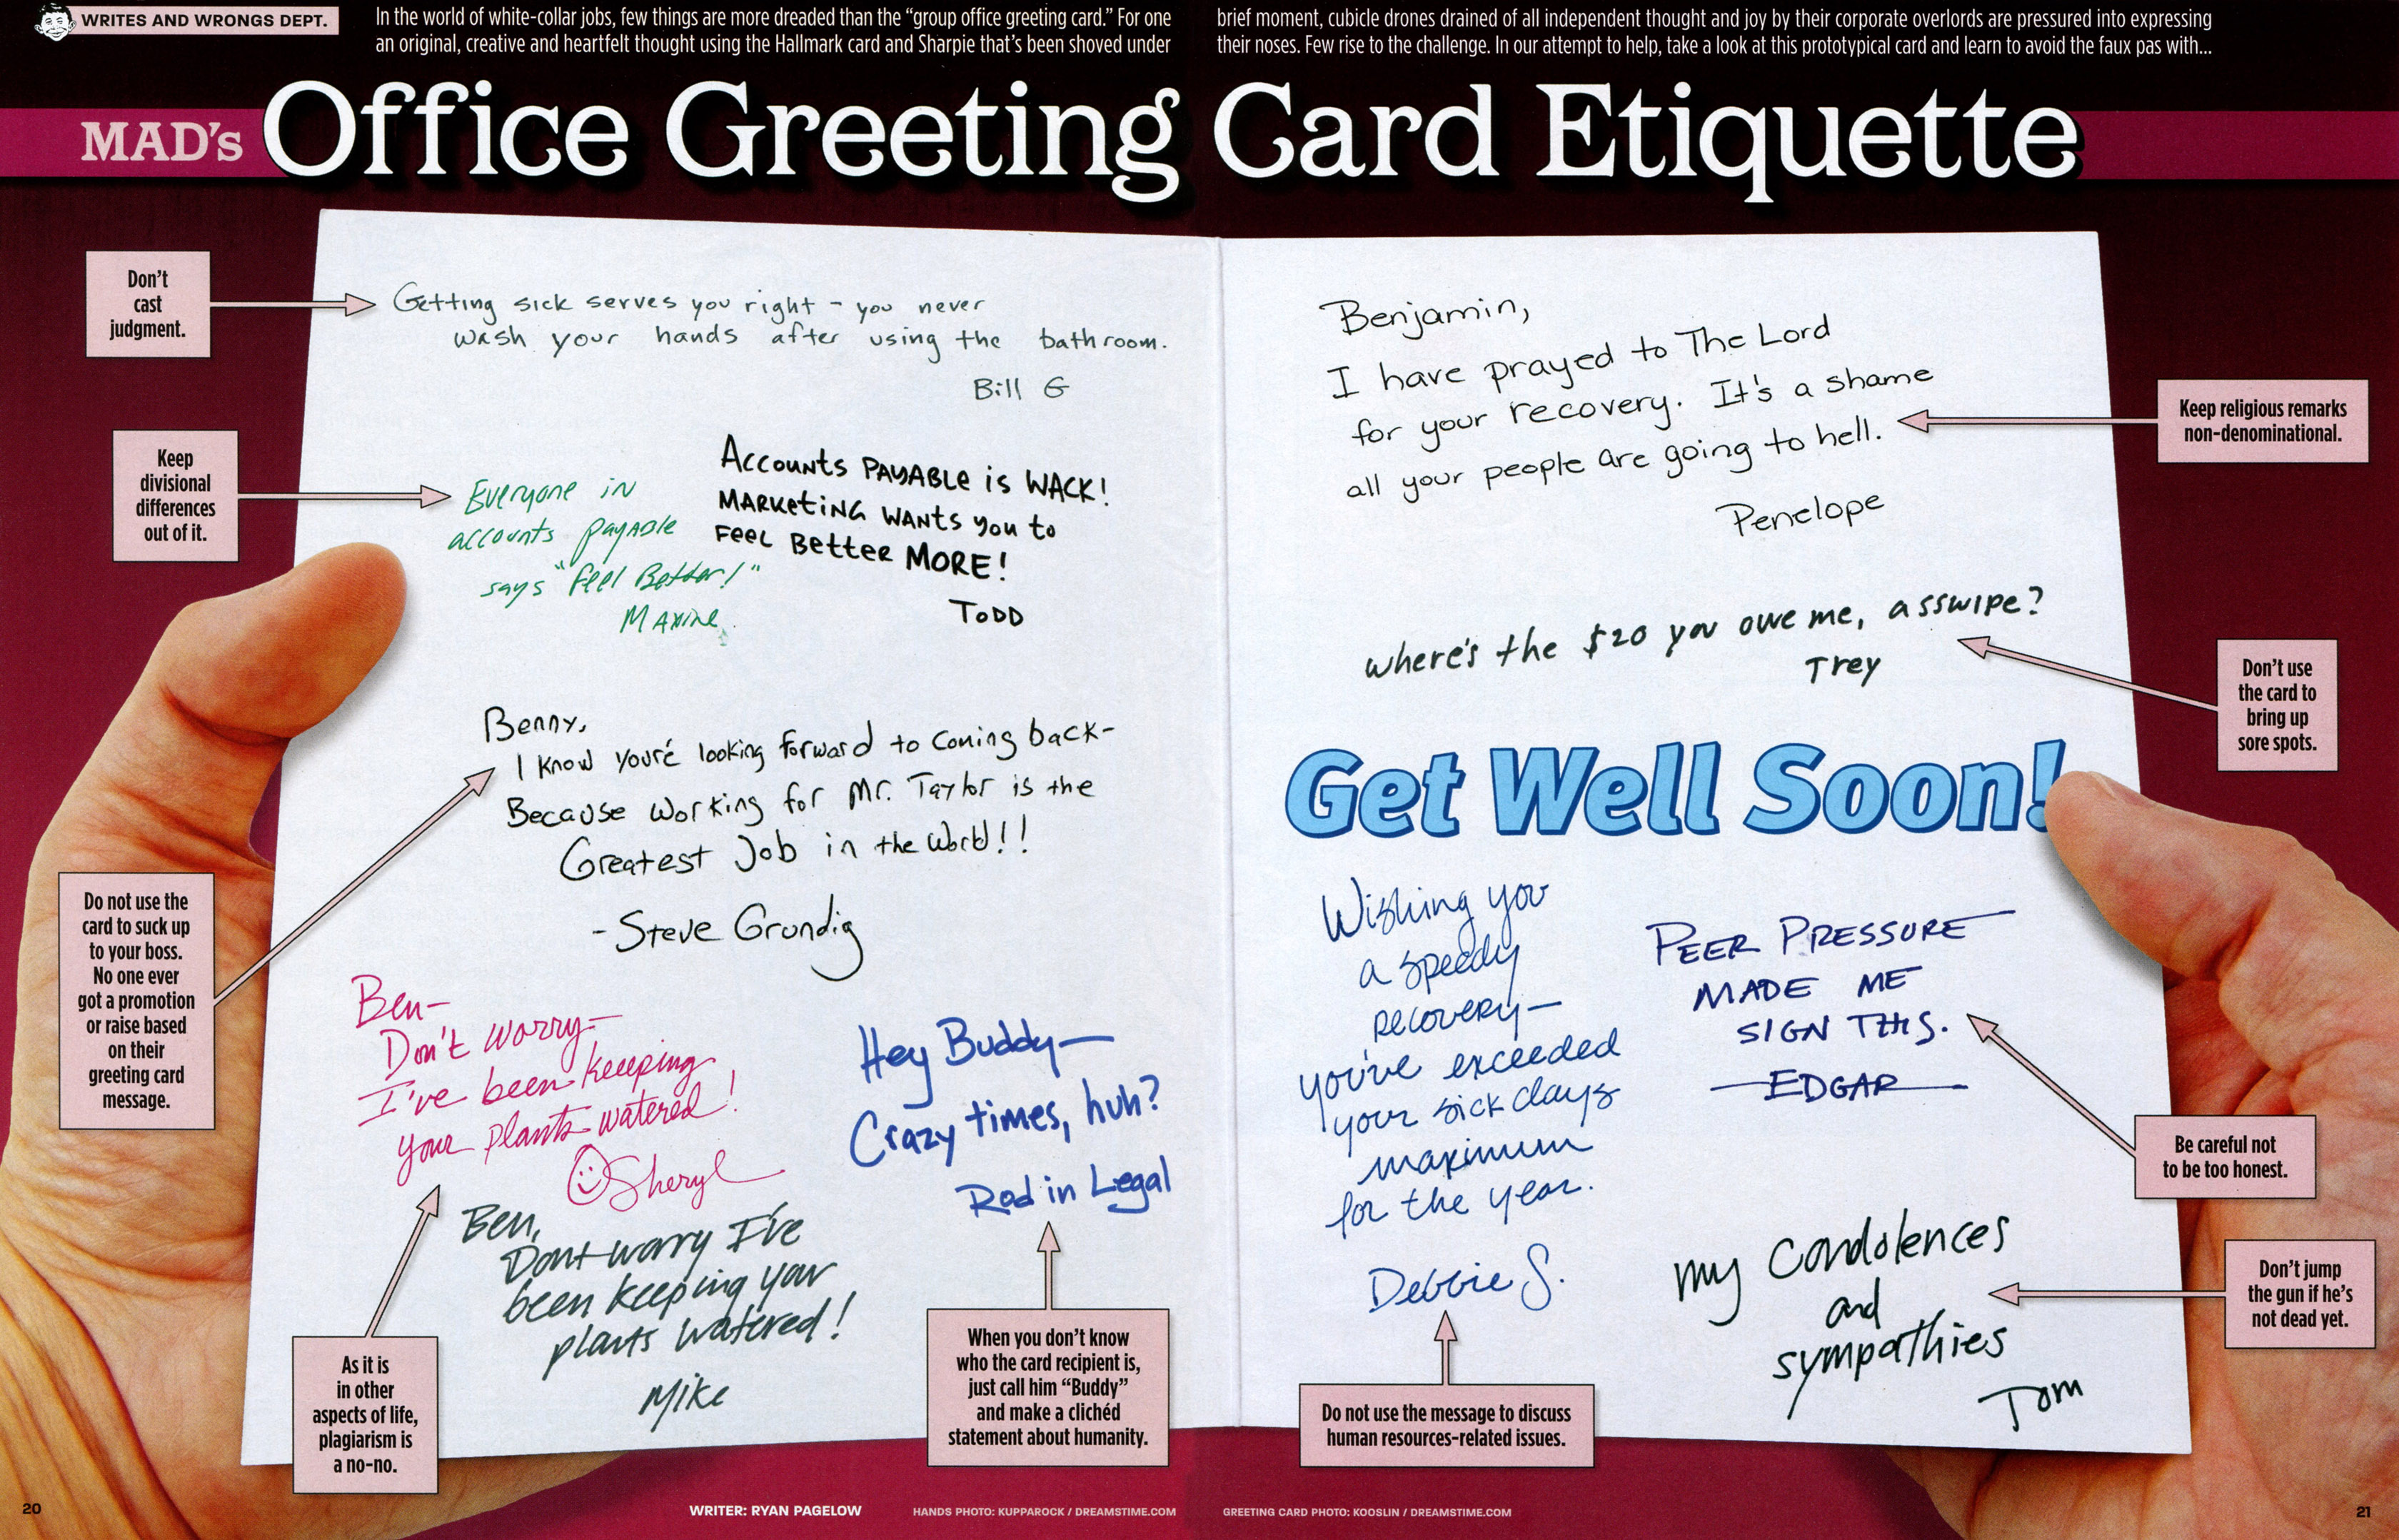 WRITES AND WRONGS DEPT.
In the world of white-collar jobs, few things are more dreaded than the “group office greeting card.” For one
an original, creative and heartfelt thought using the Hallmark card and Sharpie that’s been shoved under
brief moment, cubicle drones drained of all independent thought and joy by their corporate overlords are pressured into expressing
their noses. Few rise to the challenge. In our attempt to help, take a look at this prototypical card and learn to avoid the faux pas with...
MAD’s Office Greeting Card Etiquette
Don’t
cast
judgment.
Getting sick serves you right - you never
wash your hands after using the bathroom.
Bill G
Keep
divisional
differences
out of it.
Everyone in
accounts payable
says "Feel Better!"
Maxine
Accounts PAYABLE is WACK!
MARKETING WANTS you to
FEEL BETTER MORE!
TODD
Do not use the
card to suck up
to your boss.
No one ever
got a promotion
or raise based
on their
greeting card
message.
Benny,
I know you're looking forward to coming back-
Because working for Mr. Taylor is the
Greatest Job in the World!!
- Steve Grundig
As it is
in other
aspects of life,
plagiarism is
a no-no.
Ben-
Don't worry-
I've been keeping
your plants watered!
Sheryl
Ben,
Dont worry I've
been keeping your
plants watered!
Mike
Hey Buddy-
Crazy times, huh?
Rod in Legal
When you don’t know
who the card recipient is,
just call him “Buddy”
and make a clichéd
statement about humanity.
Benjamin,
I have prayed to The Lord
for your recovery. It's a shame
all your people are going to hell.
Penelope
Keep religious remarks
non-denominational.
where's the $20 you owe me, asswipe?
Trey
Don’t use
the card to
bring up
sore spots.
Get Well Soon!
Wishing you
a speedy
recovery-
you've exceeded
your sick days
maximum
for the year.
Debbie S.
Do not use the message to discuss
human resources-related issues.
PEER PRESSURE
MADE ME
SIGN THIS.
-EDGAR-
Be careful not
to be too honest.
my condolences
and
sympathies
Tom
Don’t jump
the gun if he’s
not dead yet.
20
WRITER: RYAN PAGELOW
HANDS PHOTO: KUPPAROCK / DREAMSTIME.COM
GREETING CARD PHOTO: KOOSLIN / DREAMSTIME.COM
21